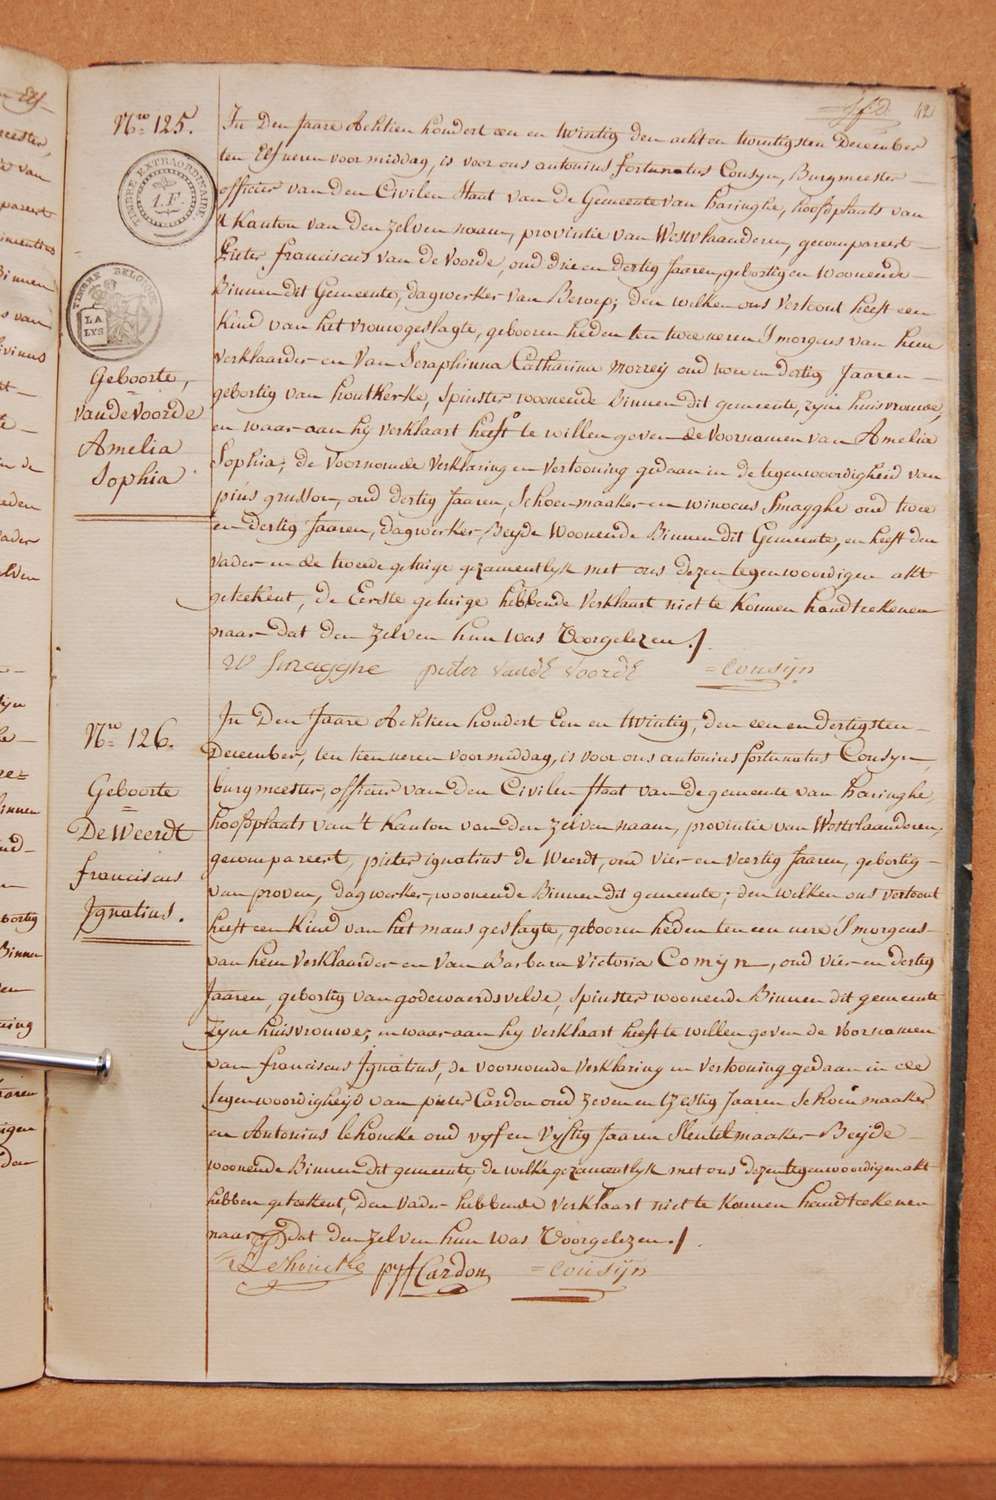 42
Nro 125.
TIMBRE EXTRAORDINAIRE
1.F.
TIMBRE BELGIQUE
LA
LYS
Geboorte,
vandeVoorde
Amelia
Sophia
In Den Jaare Achtien hondert een en twintig den acht en twintigsten December
ten Elf ueren voormiddag, is voor ons antonius fortunatus Cousyn, Burgmeester
officier van den Civilen Staat van de Gemeente van haringhe, hoofdplaats van
't Kanton van den zelven naam, provintie van Westvlaanderen, gecompareert
Pieter franciscus van de Voorde, oud drie en dertig Jaaren, gebortig en Woonende
Binnen dit Gemeente, dagwerker van Beroep; den welken ons vertoont heeft een
kind van het vrouwgeslagte, gebooren heden ten twee ueren S'morgens van hem
verklaarder en van Seraphinna Catharina Morreij oud twee en dertig Jaaren
gebortig van houtkerke, Spinster woonende Binnen dit gemeente, zyne huisvrouwe,
en waar aan hy verklaart heeft te willen geven de voornamen van Amelia
Sophia, de voornoemde verklaring en vertooning gedaan in de tegenwoordigheid van
pius grusson, oud dertig Jaaren, Schoenmaaker en winocus Smagghe oud twee
en dertig Jaaren, dagwerker, Beyde Woonende Binnen dit Gemeente, en heeft den
vader en de tweede getuige gezamentlyk met ons dezen tegenwoordigen akt
geteekent, de Eerste getuige hebbende verklaart niet te konnen handteekenen
naar dat den zelven hun was Voorgelezen./.
W Smagghe pieter vande voorde =Cousijn
Nro 126.
Geboorte
=
De Weerdt
franciscus
Ignatius.
In Den Jaare Achtien hondert Een en twintig, den een en dertigsten
December, ten tien ueren voormiddag, is voor ons antonius fortunatus Cousyn
burgmeester, officier van den Civilen Staat van de gemeente van haringhe,
hoofdplaats van 't Kanton van den zelven naam, provintie van Westvlaanderen,
gecompareert, pieter ignatius de Weerdt, oud vier en veertig Jaaren, gebortig
van proven, dagwerker, woonende Binnen dit gemeente; den welken ons vertoont
heeft een Kind van het mans geslagte, gebooren heden ten een uere S'morgens
van hem verklaarder en van Barbara Victoria Comyn, oud vier en dertig
Jaaren, gebortig van godewaerdsvelde, Spinster woonende Binnen dit gemeente
zyne huisvrouwe; en waar aan hy verklaart heeft te willen geven de voornamen
van franciscus Ignatius, de voornoemde verklaring en vertooning gedaan in de
tegenwoordigheyd van pieter Cardon oud zeven en tzestig Jaaren Schoenmaaker
en Antonius lehoucke oud vyf en vyftig Jaaren Sleutelmaaker Beyde
woonende Binnen dit gemeente, de welke gezamentlyk met ons dezen tegenwoordigen akt
hebben geteekent, den vader hebbende verklaart niet te konnen handteekenen
naar dat den zelven hun was Voorgelezen./.
A Lehoucke pyf Cardon =Cousijn